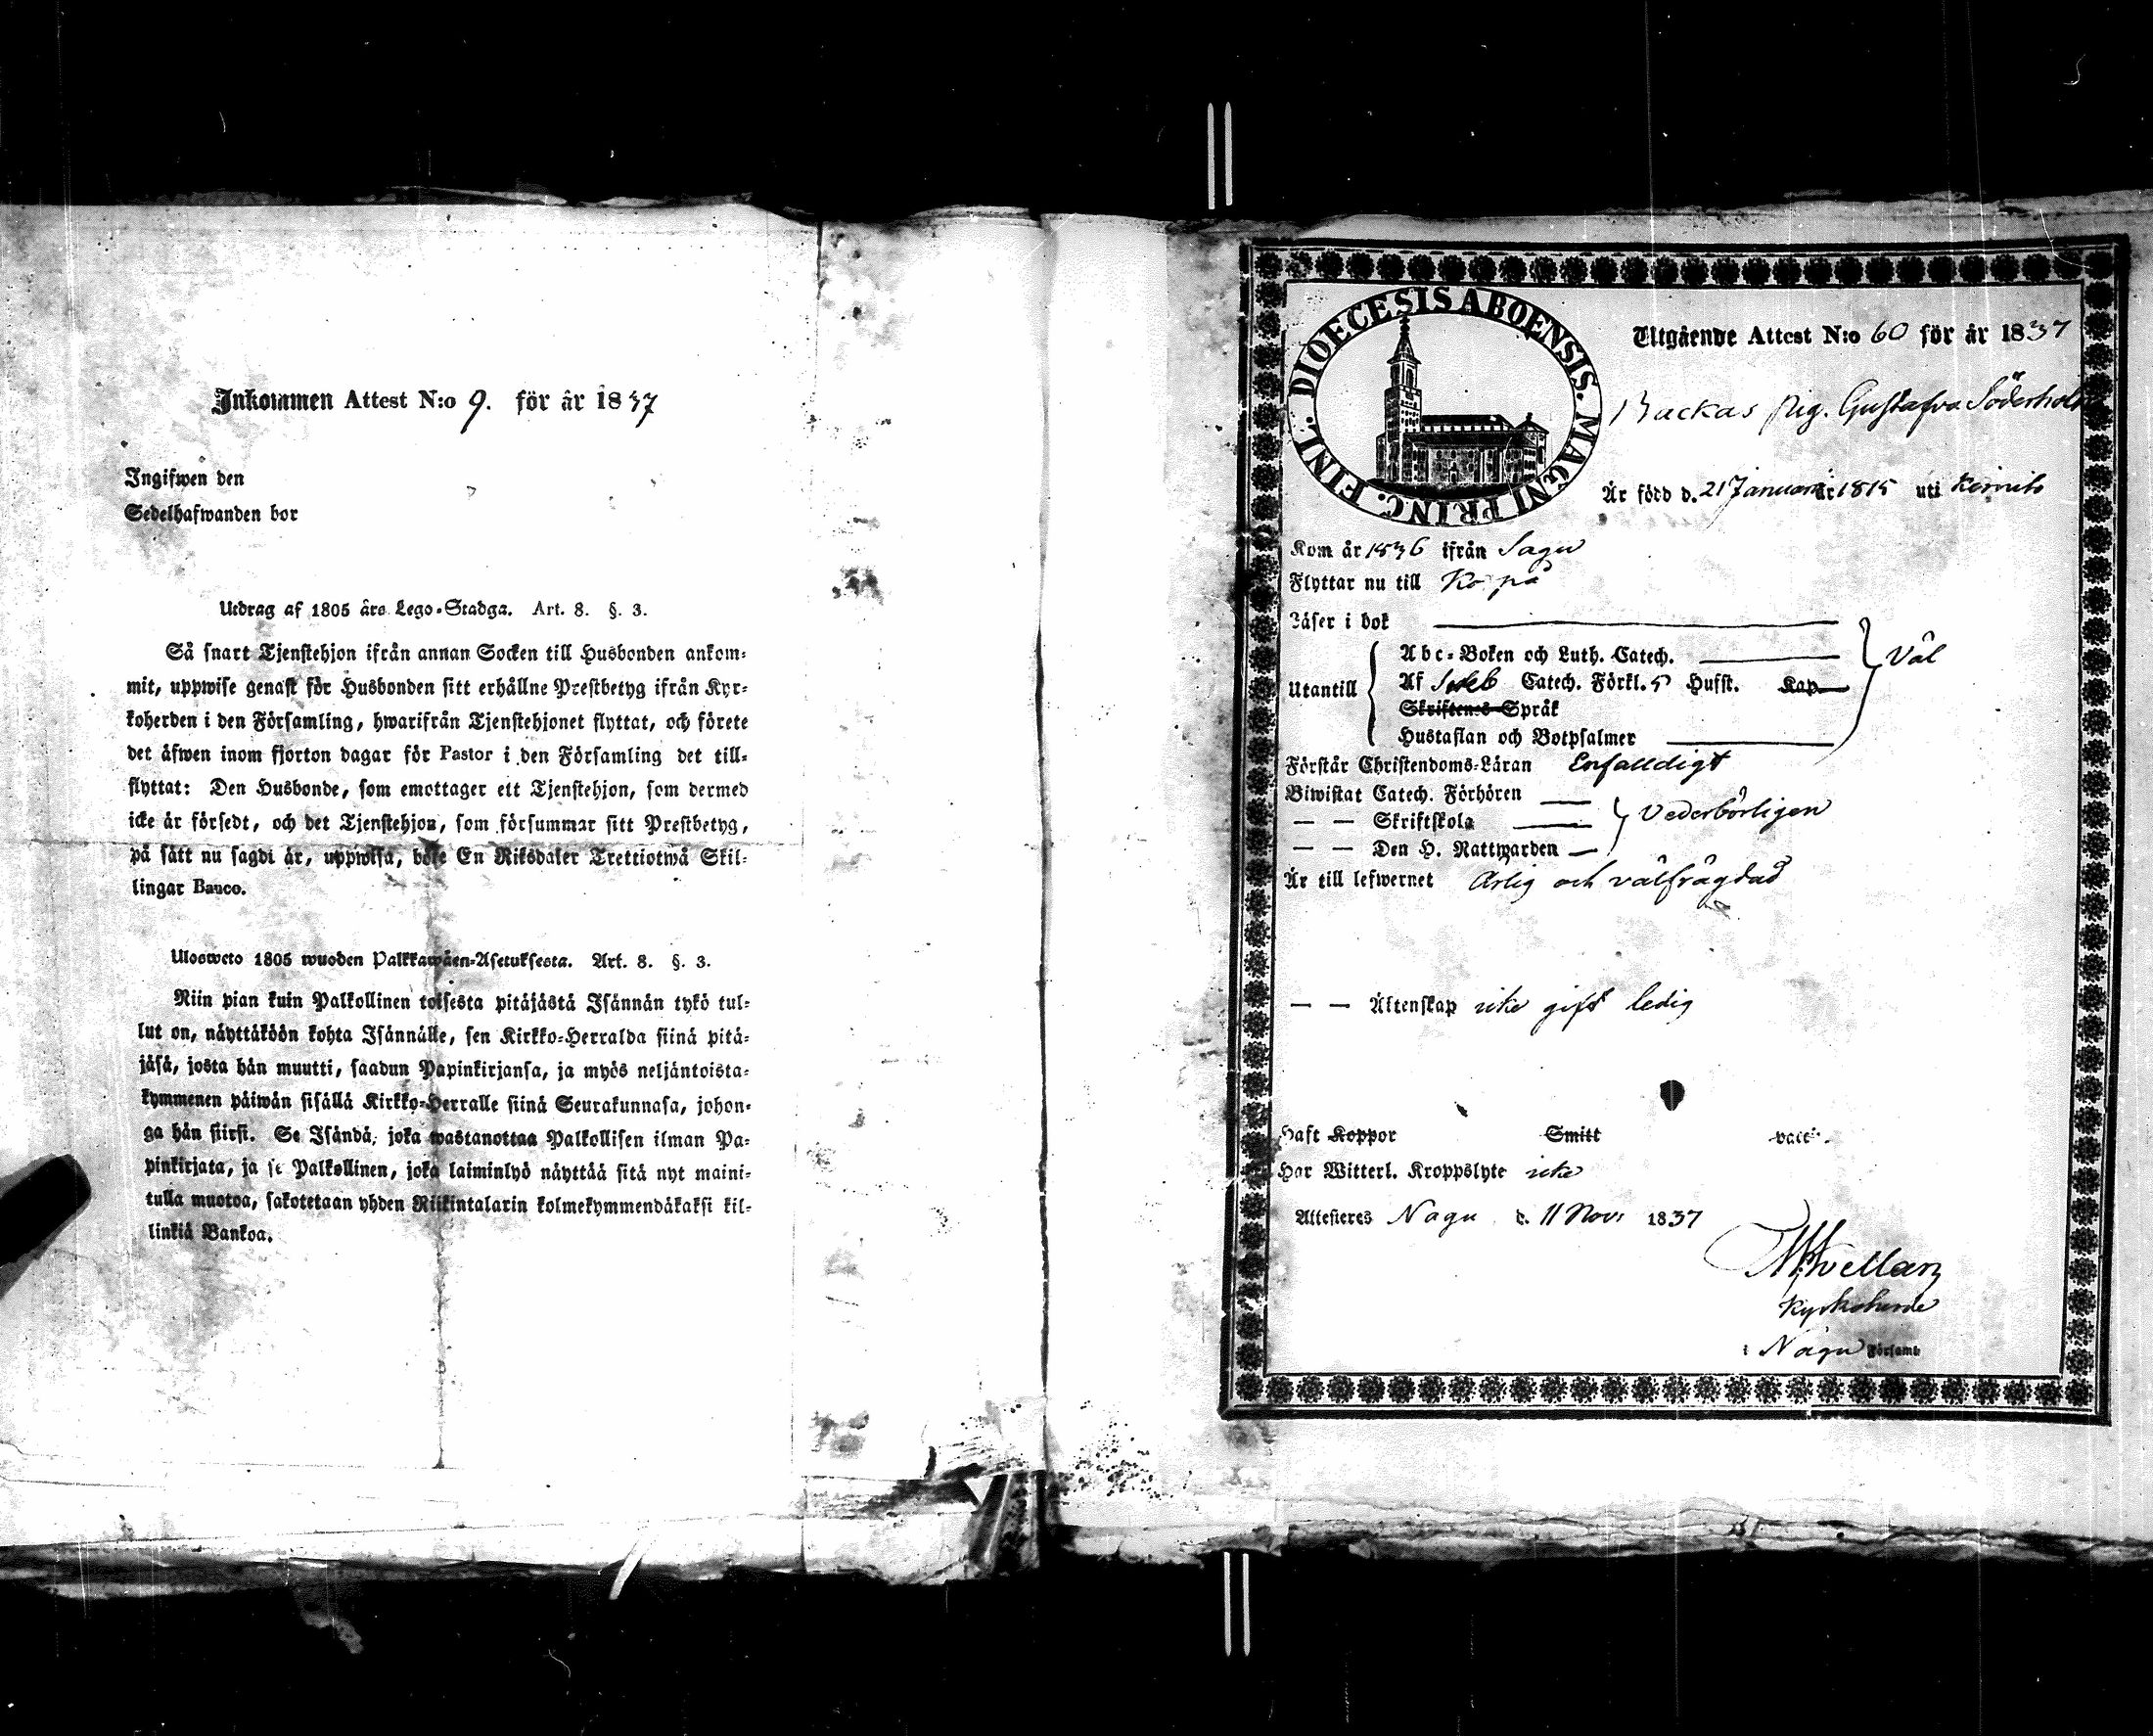 Inkommen Attest N:o 9. för år 1837
Ingifwen den
Sedelhafwanden bor
Utdrag af 1805 års Lego-Stadga. Art. 8. §. 3.
Så snart Tjenstehjon ifrån annan Socken till Husbonden ankom-
mit, uppwise genast för Husbonden sitt erhållne Prestbetyg ifrån Kyr-
koherden i den Församling, hwarifrån Tjenstehjonet flyttat, och förete
det äfwen inom fjorton dagar för Pastor i den Församling det till-
flyttat: Den Husbonde, som emottager ett Tjenstehjon, som dermed
icke är försedt, och det Tjenstehjon, som försummar sitt Prestbetyg,
på sätt nu sagdt är, uppwisa, böte En Riksdaler Trettiotwå Skil-
lingar Banco.
Ulosweto 1805 wuoden Palkkawäen-Asetuksesta. Art. 8. §. 3.
Niin pian kuin Palkollinen toisesta pitäjästä Isännän tykö tul-
lut on, näyttäköön kohta Isännälle, sen Kirkko-Herralda siinä pitä-
jäsä, josta hän muutti, saadun Papinkirjansa, ja myös neljäntoista-
kymmenen päiwän sisällä Kirkko-Herralle siinä Seurakunnasa, johon-
ga hän siirsi. Se Isändä, joka wastanottaa Palkollisen ilman Pa-
pinkirjata, ja se Palkollinen, joka laiminlyö näyttää sitä nyt maini-
tulla muotoa, sakotetaan yhden Riikintalarin kolmekymmendäkaksi kil-
linkiä Bankoa.
DIOECESIS ABOENSIS. MAGNI PRINC. FINL.
Utgående Attest N:o 60 för år 1837
Backas pig. Gustafva Söderholm
Är född d. 21 Januari år 1815 uti Kimito
Kom år 1836 ifrån Sagu
Flyttar nu till Korpo
Läser i bok
Abc-Boken och Luth. Catech. Väl
Utantill Af Catech. Förkl. 5 Hufst. Kap
Skriftenes Språk
Hustaflan och Botpsalmer
Förstår Christendoms-Läran Enfaldigt
Biwistat Catech. Förhören
— — Skriftskola Vederbörligen
— — Den H. Nattwarden
Är till lefwernet Ärlig och välfrägdad
— — Äktenskap icke gift ledig
Haft Koppor Smitt vacc.
Har Witterl. Kroppslyte icke
Attesteres Nagu d. 11 Nov. 1837
Kyrkoherde
i Nagu Församl.